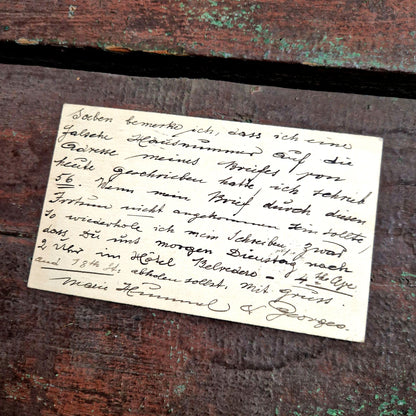 Soeben bemerke ich, dass ich eine
falsche Hausnummer auf die
Adresse meines Briefes von
heute geschrieben habe ich schrieb
56. Wenn mein Brief durch diesen
Irrtum nicht angekommen sein sollte,
so wiederhole ich mein Schreiben, zwar
dass Du uns morgen Dienstag nach
2 Uhr im Hotel Belvedere - 4 the Ave
and 18th St. abholen sollst. Mit gruss
Marie Himmel & Georges.